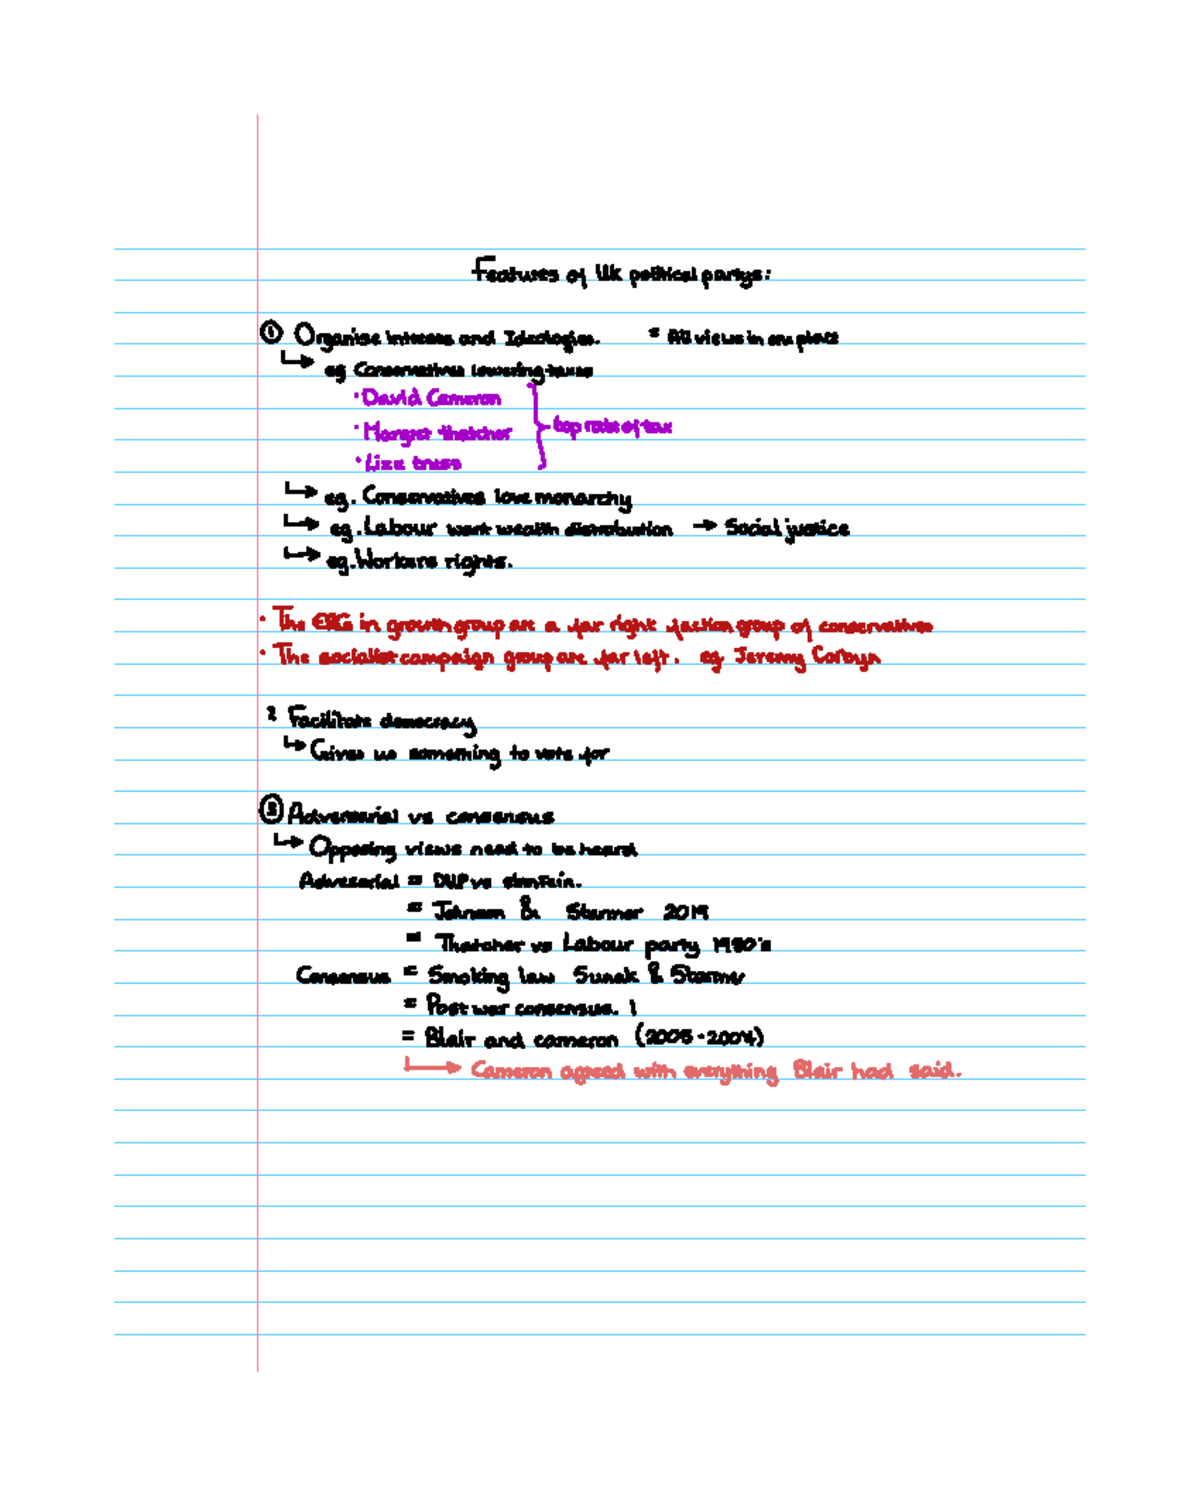 Features of Uk political partys:
① Organise interests and Ideologies. * All views in one place
↳ eg Conservatives lowering taxes
· David Cameron
· Margret thatcher } top rate of tax
· Lizz truss
↳ eg. Conservatives love monarchy
↳ eg. Labour want wealth distrobution → Social justice
↳ eg. Workers rights.
· The ERG in growth group are a far right faction group of conservatives
· The socialist campaign group are far left. eg Jeremy Corbyn
2 Facilitate democracy
↳ Gives us something to vote for
③ Adversarial vs consensus
↳ Opposing views need to be heard
Adversarial = DUP vs sinn Fein.
= Johnson & Starmer 2019
= Thatcher vs Labour party 1980's
Consensus = Smoking law Sunak & Starmer
= Post war consensus.
= Blair and cameron (2005-2007)
↳ Cameron agreed with everything Blair had said.